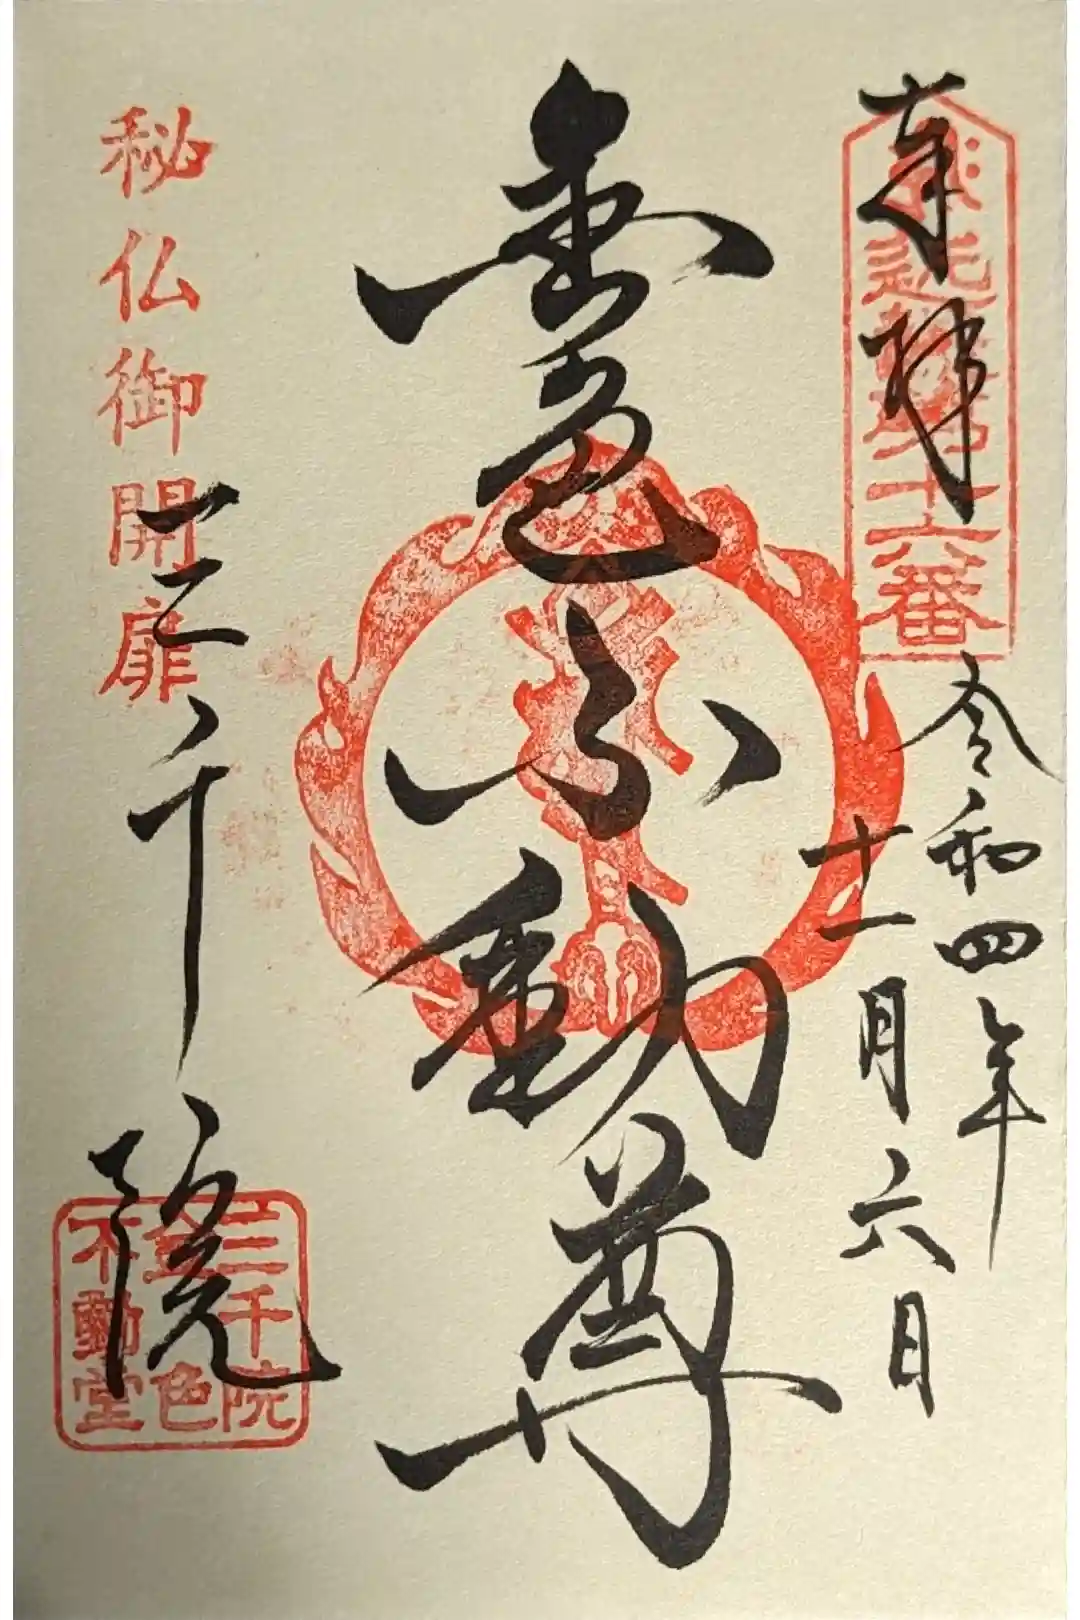 奉拝
近畿第十六番
令和四年
十一月六日
金色不動尊
秘仏御開扉
三千院
三千院
金色
不動堂